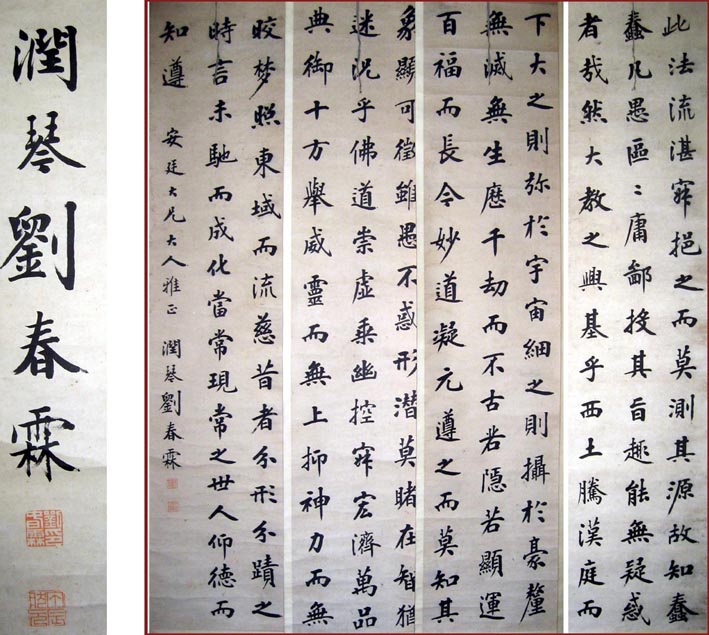 此法流湛寂挹之而莫測其源故知蠢
蠢凡愚區〻庸鄙投其旨趣能無疑惑
者哉然大教之興基乎西土騰漢庭而
下大之則弥於宇宙細之則攝於豪釐
無滅無生歷千劫而不古若隱若顯運
百福而長今妙道凝元遵之而莫知其
象顯可徵雖愚不惑形潛莫睹在智猶
迷況乎佛道崇虛乘幽控寂宏濟萬品
典御十方舉威靈而無上抑神力而無
皎夢照東域而流慈昔者分形分蹟之
時言未馳而成化當常現常之世人仰德而
知遵
安廷大兄大人雅正 潤琴劉春霖
潤琴劉春霖